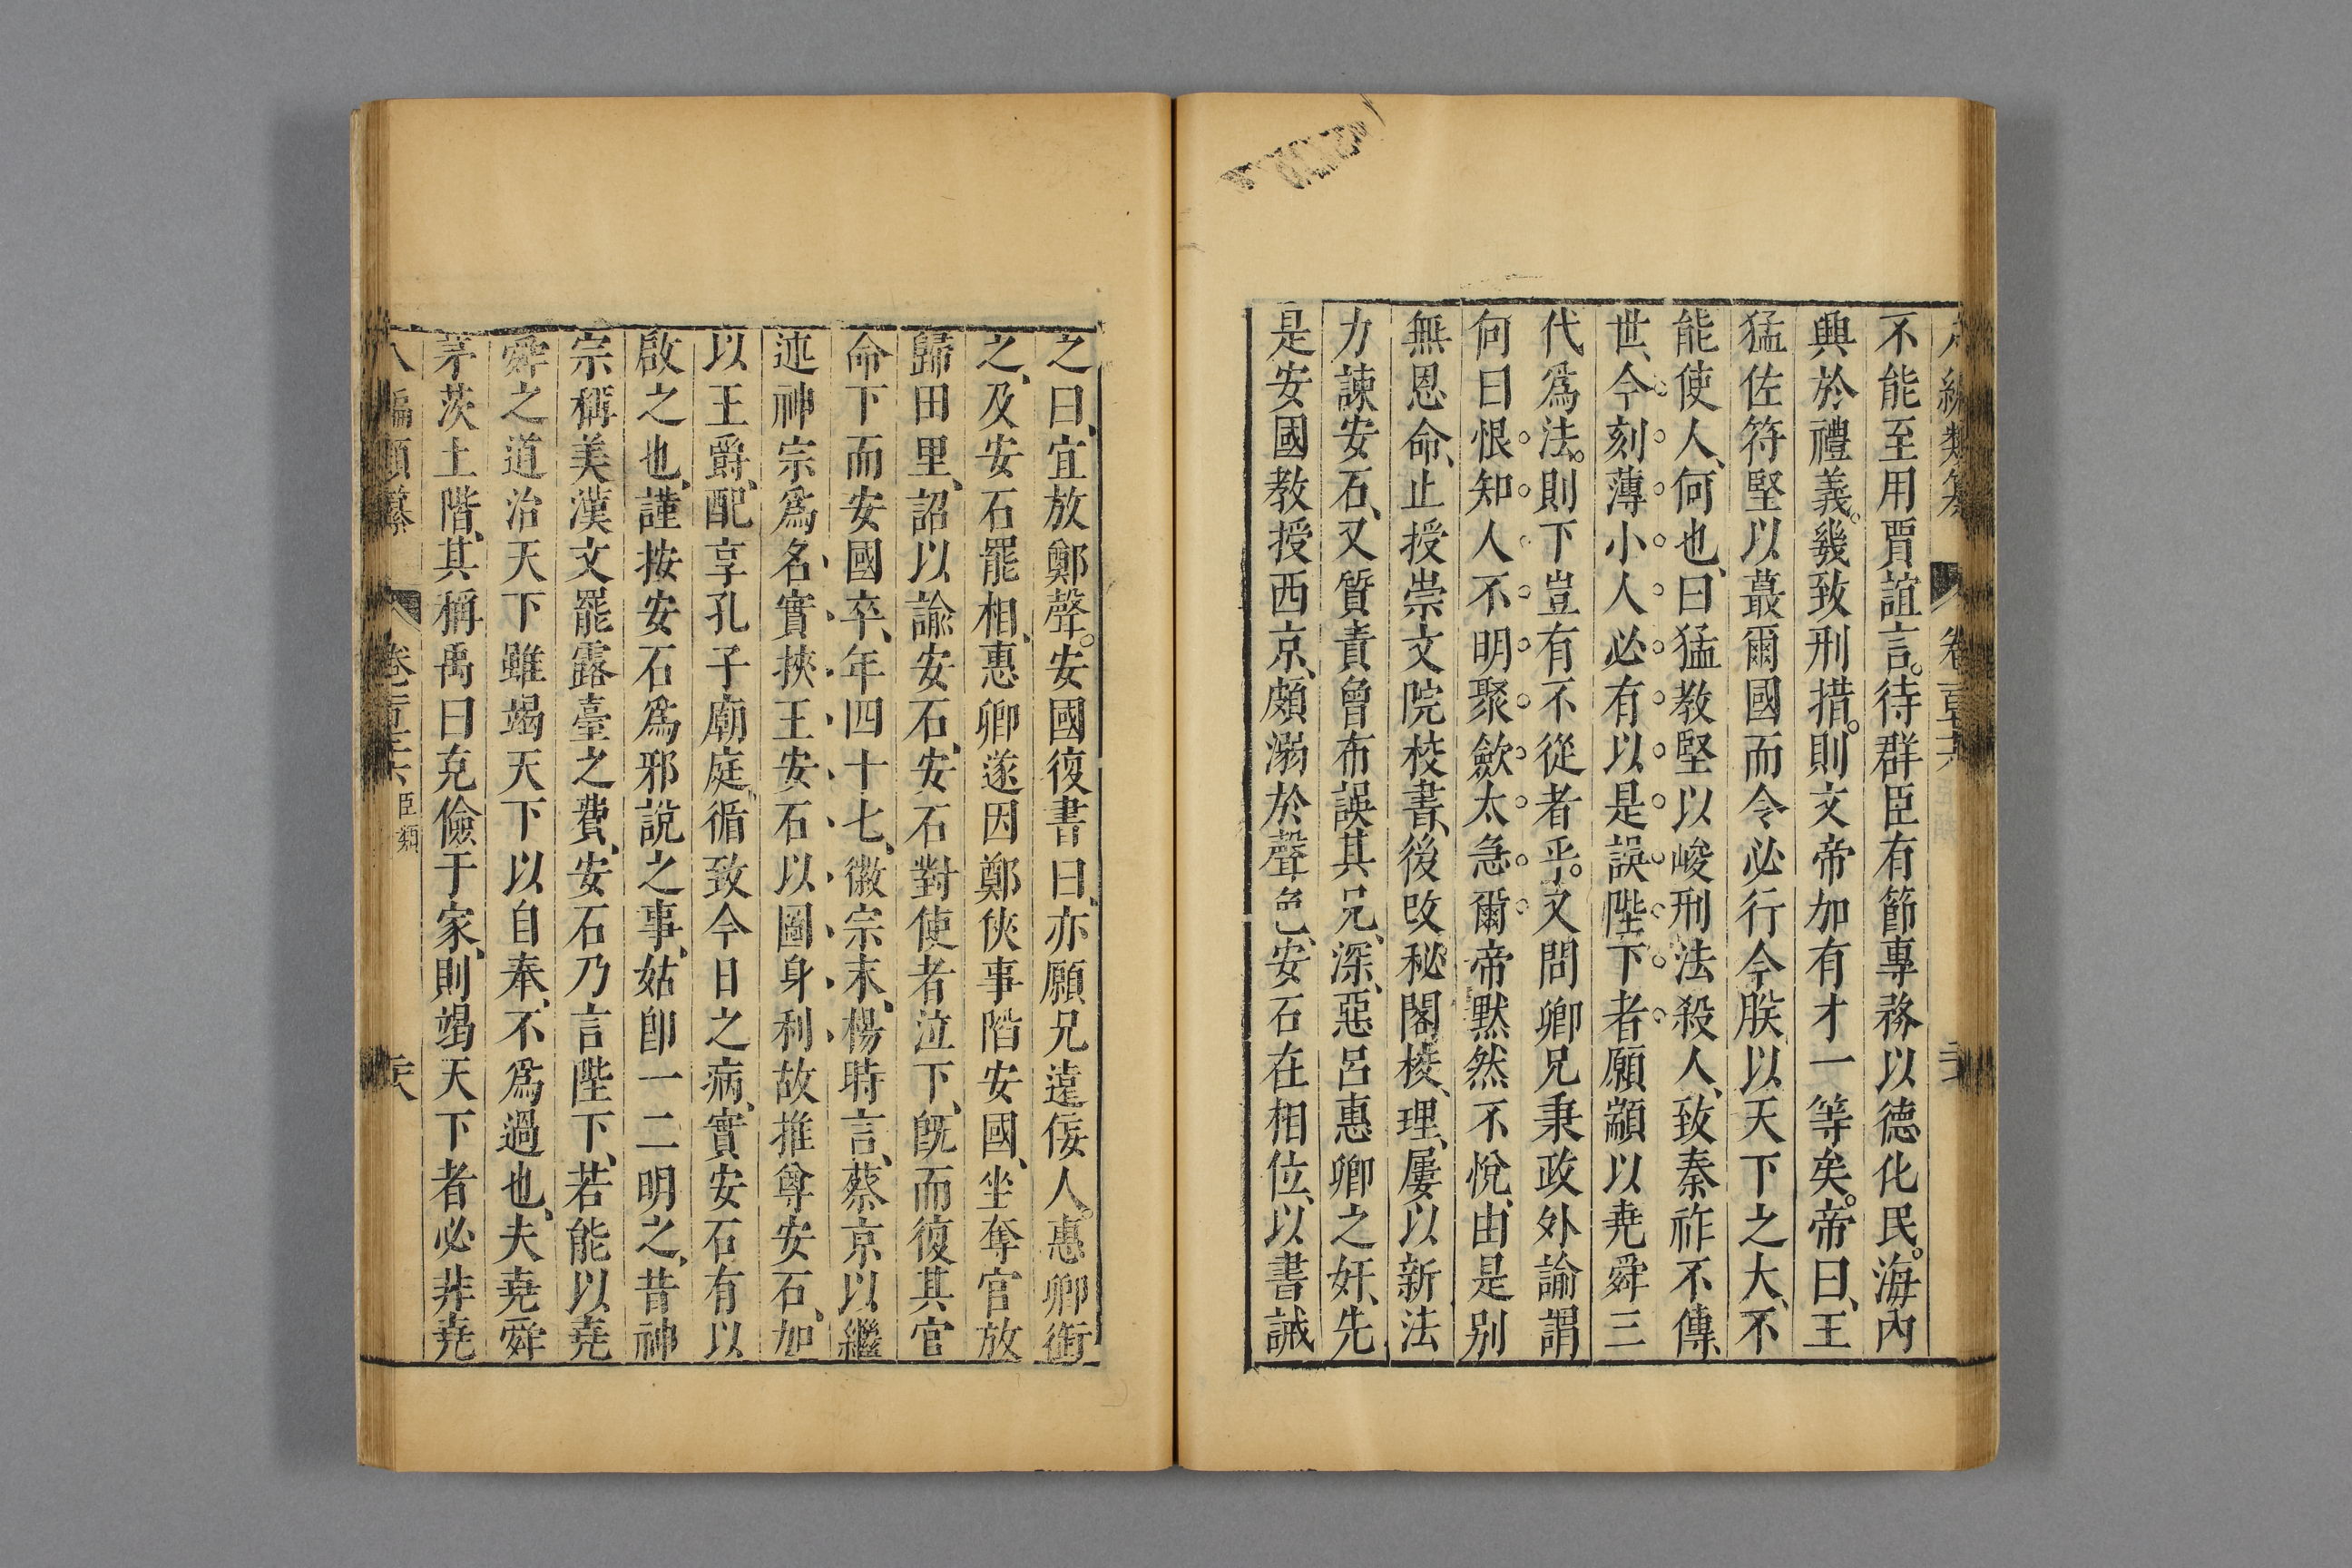 不能至用賈誼言。待群臣有節專務以德化民。海內
興於禮義。幾致刑措。則文帝加有才一等矣。帝曰、王
猛佐符堅以蕞爾國而令必行今朕以天下之大、不
能使人、何也、曰猛教堅以峻刑法殺人、致秦祚不傳、
世、今刻薄小人必有以是誤陛下者願顓以堯舜三
代爲法。則下豈有不從者乎。又問卿兄秉政外論謂
何曰恨知人不明聚歛太急爾帝默然不悅、由是别
無恩命、止授崇文院校書、後改秘閣校理、屢以新法
力諫安石、又質責曾布誤其兄、深、惡呂惠卿之奸、先
是安國教授西京、頗溺於聲色、安石在相位、以書誡
之曰、宜放鄭聲。安國復書曰、亦願兄遠佞人。惠卿銜
之、及安石罷相、惠卿遂因鄭俠事陷安國、坐奪官放
歸田里、詔以諭安石、安石對使者泣下、既而復其官
命下而安國卒、年四十七、徽宗末、楊時言、蔡京以繼
述神宗爲名、實挾王安石以圖身利故推尊安石、加
以王爵、配享孔子廟庭、循致今日之病、實安石有以
啟之也、謹按安石爲邪說之事、姑卽一二明之、昔神
宗稱美漢文罷露臺之費、安石乃言陛下、若能以堯
舜之道治天下雖竭天下以自奉、不爲過也、夫堯舜
茅茨土階、其稱禹曰克儉于家、則竭天下者必非堯
八編類纂 卷 臣類